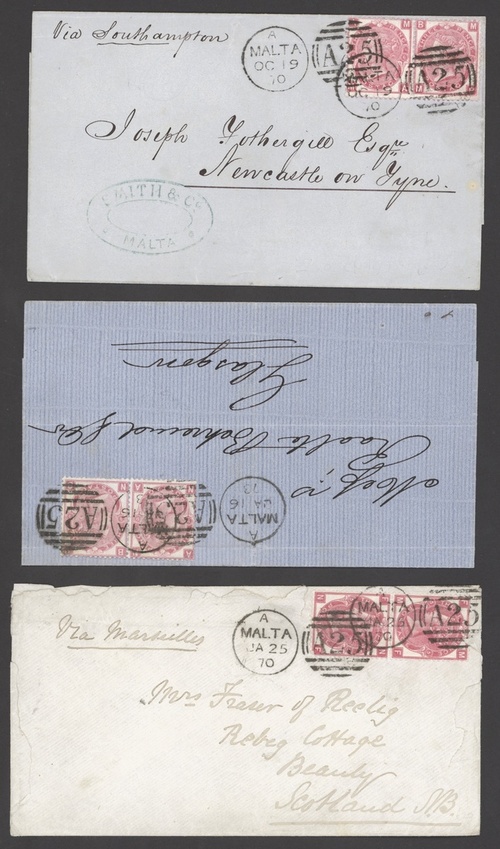 Via Southampton
A
MALTA
OC 19
70
A25
A
MALTA
OC 19
70
A25
M B
M
Joseph Fothergill Esqre
Newcastle on Tyne.
SMITH & Co
MALTA
Messrs
Glasgow
A
MALTA
JA 16
73
A25
A
MALTA
A25
Via Marseilles
A
MALTA
JA 25
70
A25
MALTA
JA 25
70
A25
Mrs Fraser of Reelig
Rebeg Cottage
Beauly
Scotland N.B.